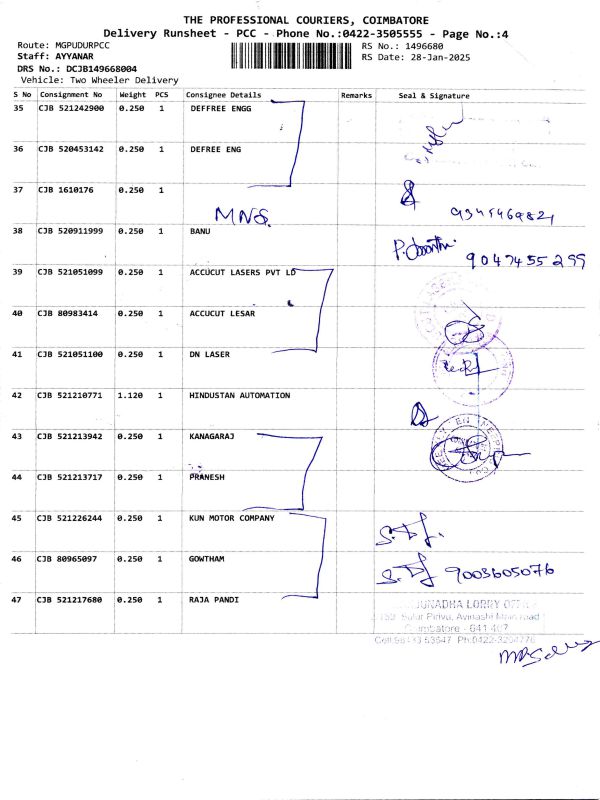 THE PROFESSIONAL COURIERS, COIMBATORE
Delivery Runsheet - PCC - Phone No.:0422-3505555 - Page No.:4
Route: MGPUDURPCC
RS No.: 1496680
Staff: AYYANAR
RS Date: 28-Jan-2025
DRS No.: DCJB149668004
Vehicle: Two Wheeler Delivery
S No Consignment No Weight PCS Consignee Details Remarks Seal & Signature
35 CJB 521242900 0.250 1 DEFFREE ENGG
36 CJB 520453142 0.250 1 DEFREE ENG
37 CJB 1610176 0.250 1
MNS.
38 CJB 520911999 0.250 1 BANU
9047455299
39 CJB 521051099 0.250 1 ACCUCUT LASERS PVT LD
40 CJB 80983414 0.250 1 ACCUCUT LESAR
41 CJB 521051100 0.250 1 DN LASER
42 CJB 521210771 1.120 1 HINDUSTAN AUTOMATION
43 CJB 521213942 0.250 1 KANAGARAJ
44 CJB 521213717 0.250 1 PRANESH
45 CJB 521226244 0.250 1 KUN MOTOR COMPANY
46 CJB 80965097 0.250 1 GOWTHAM
9003605076
47 CJB 521217680 0.250 1 RAJA PANDI
LORRY OFFICE
Sulur Pirivu, Avinashi Main Road
Coimbatore - 641 407